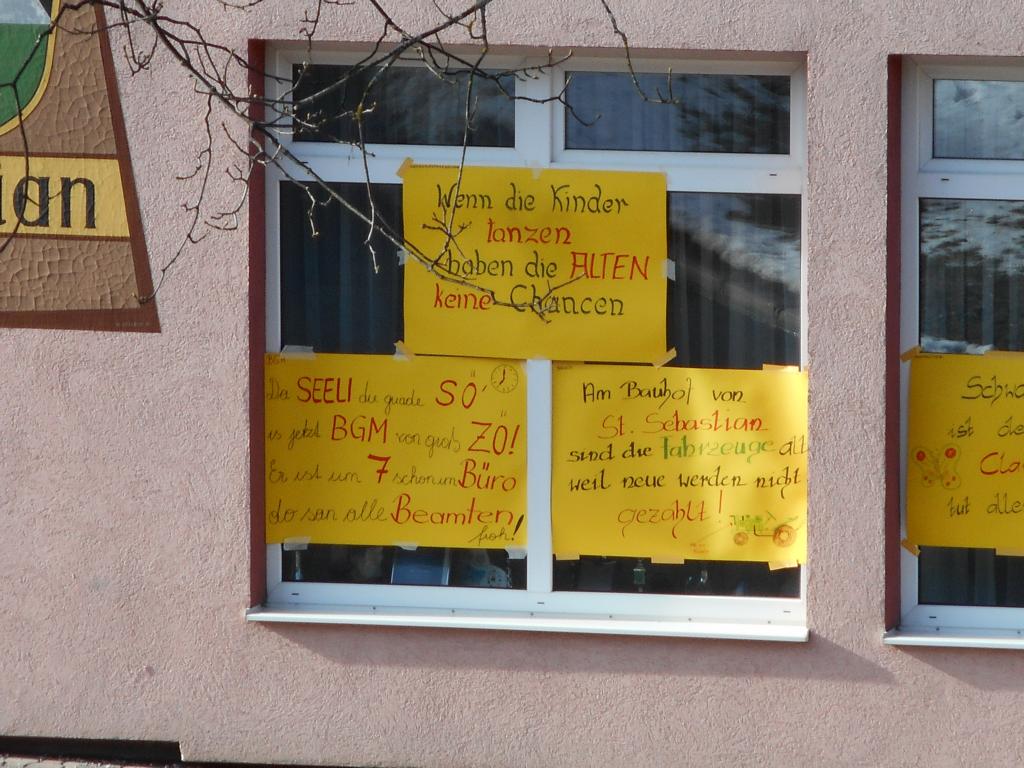 ian
Wenn die Kinder
tanzen
haben die ALTEN
keine Chancen
BGM
Da SEELI du guade SÖ,
is jetzt BGM von groß ZÖ!
Er ist um 7 schon im Büro
do san alle Beamten
froh!
Am Bauhof von
St. Sebastian
sind die Fahrzeuge alt
weil neue werden nicht
gezahlt!
Schwa
ist de
Cla
tut alle